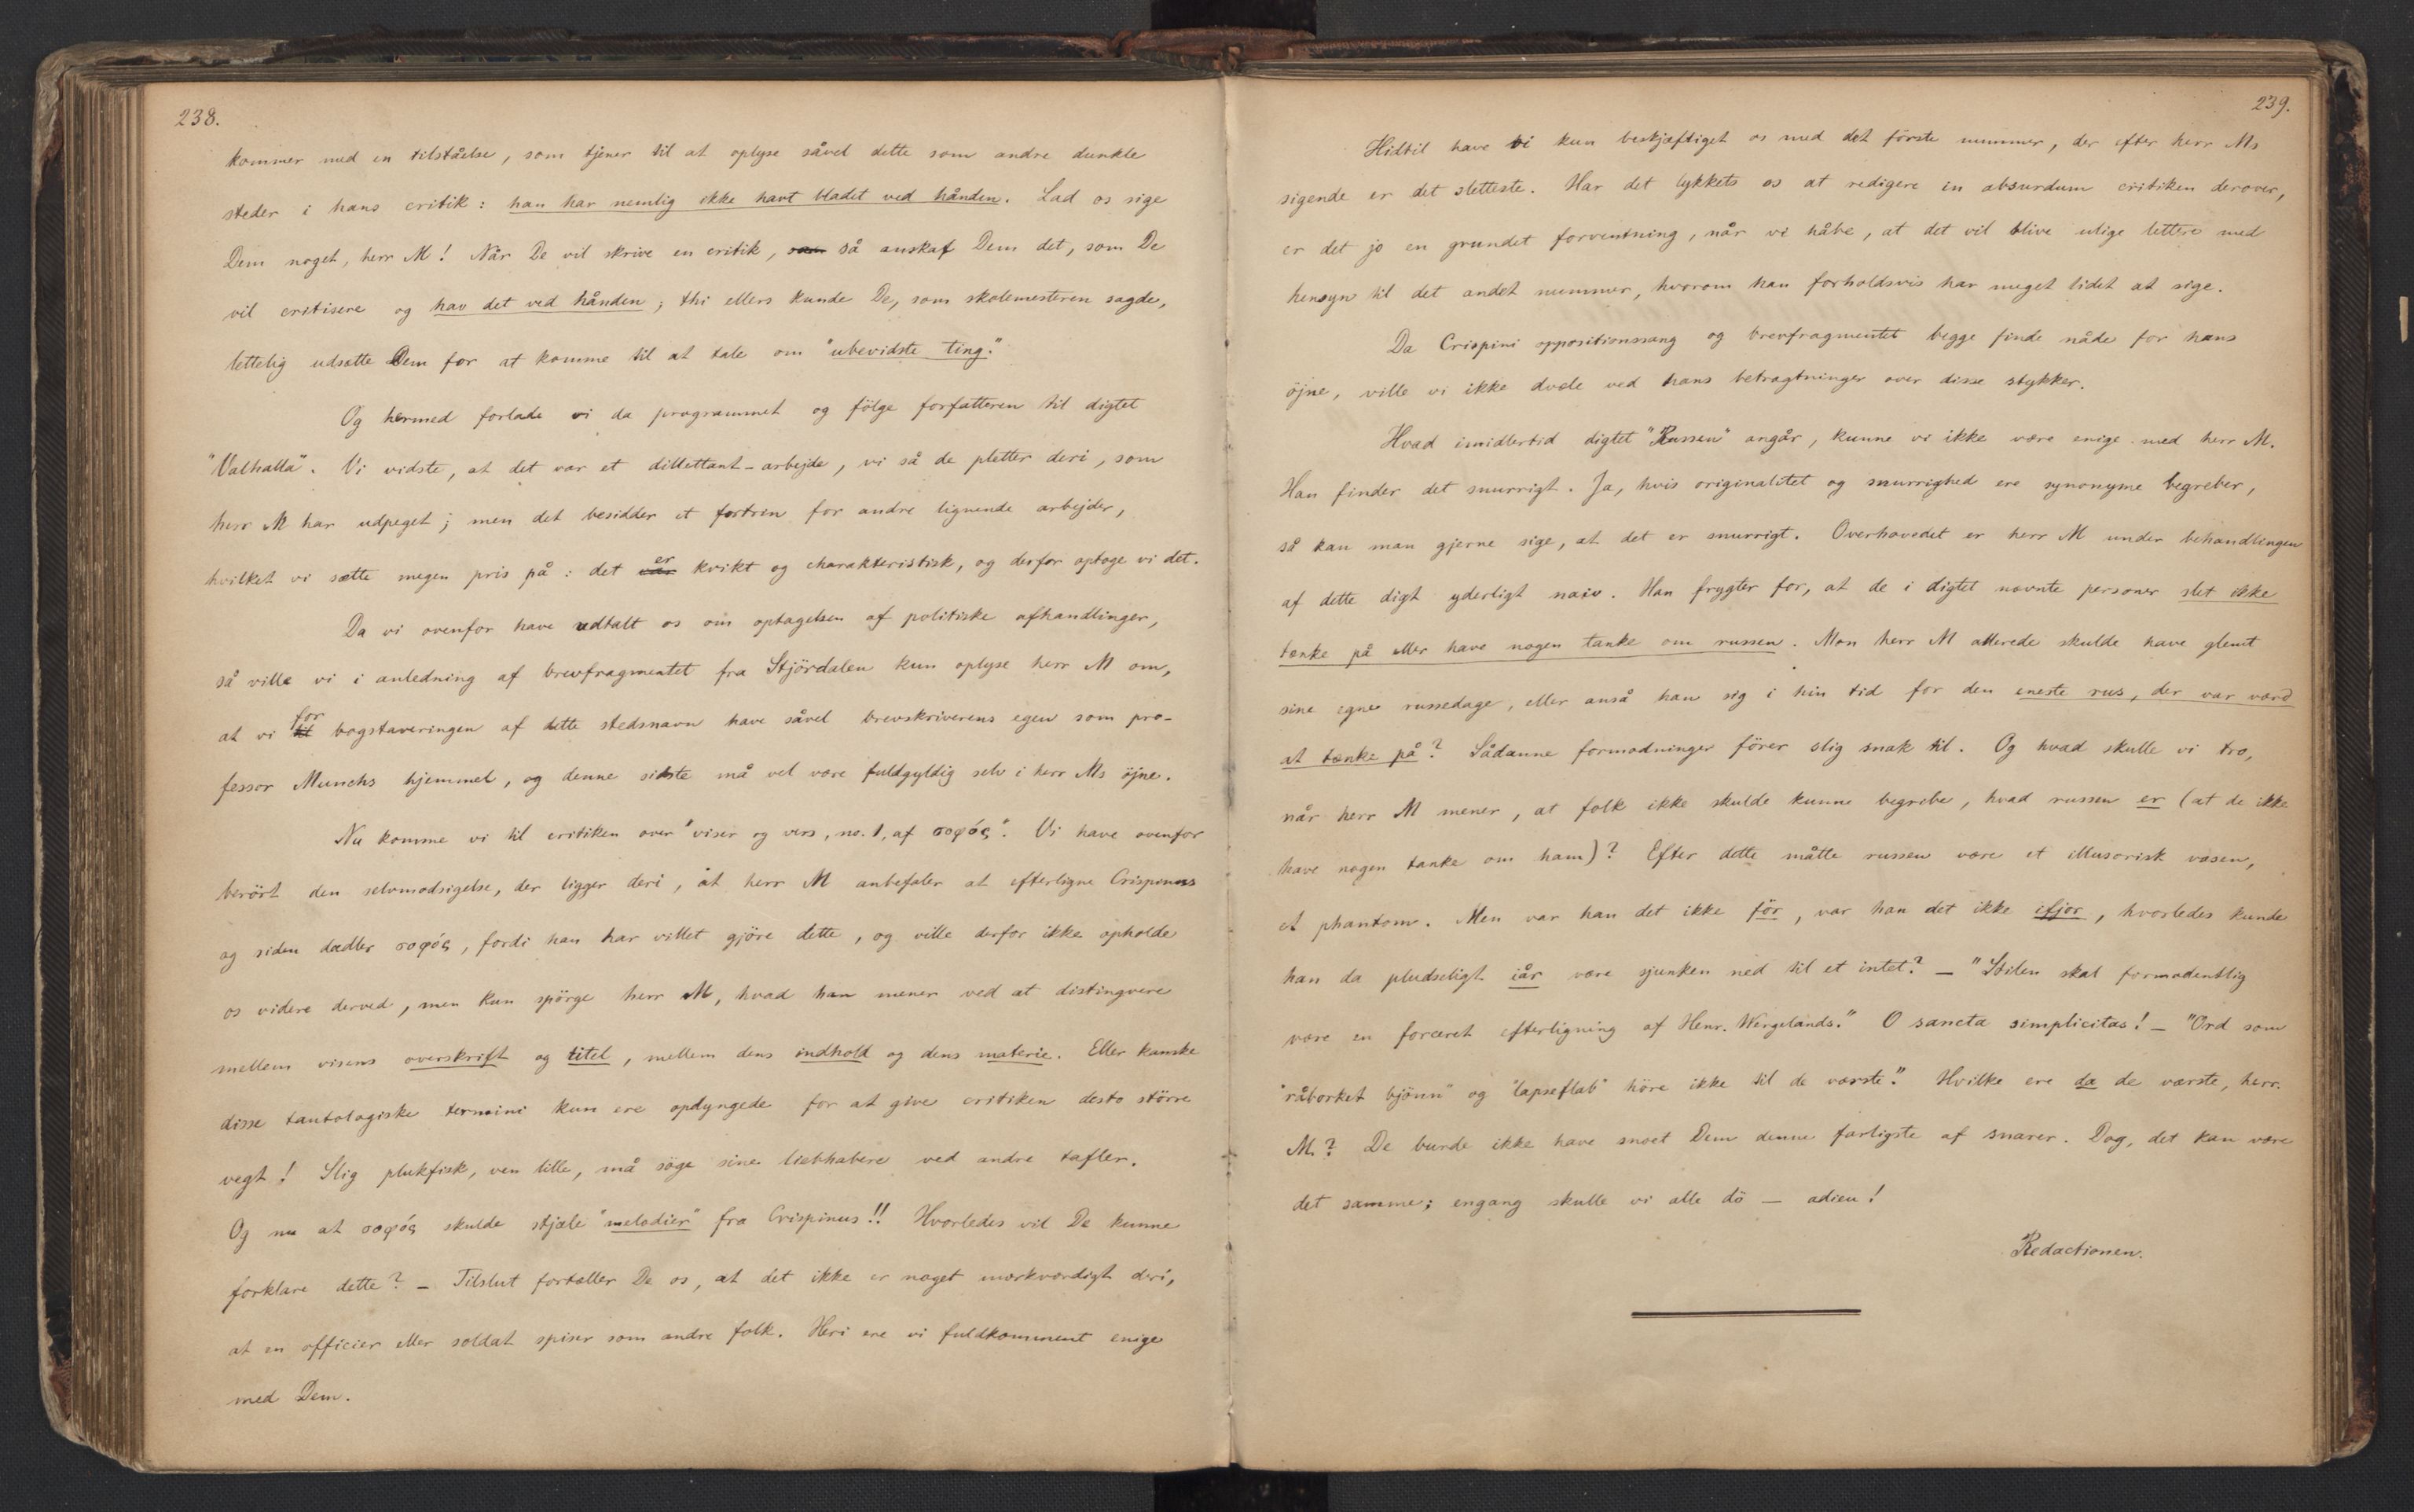 238.
kommer med en tilståelse, som tjener til at oplyse såvel dette som andre dunkle
steder i hans critik: han har nemlig ikke havt bladet ved hånden. Lad os sige
Dem noget, herr M! Når De vil skrive en critik, så anskaf Dem det, som De
vil critisere og hav det ved hånden; thi ellers kunde De, som skolemesteren sagde,
lettelig udsætte Dem for at komme til at tale om "ubevidste ting."
Og hermed forlade vi da programmet og fölge forfatteren til digtet
"Valhalla". Vi vidste, at det var et dillettant-arbejde, vi så de pletter deri, som
herr M har udpeget; men det besidder et fortrin for andre lignende arbejder,
hvilket vi sætte megen pris på: det var er kvikt og charakteristisk, og derfor optoge vi det.
Da vi ovenfor have udtalt os om optagelsen af politiske afhandlinger,
så ville vi i anledning af brevfragmentet fra Stjördalen kun oplyse herr M om,
at vi til for bogstaveringen af dette stedsnavn have såvel brevskriverens egen som pro-
fessor Munchs hjemmel, og denne sidste må vel være fuldgyldig selv i herr Ms öjne.
Nu komme vi til critiken over "viser og vers, no. 1, af σοφός". Vi have ovenfor
berört den selvmodsigelse, der ligger deri, at herr M anbefaler at efterligne Crispinus
og siden dadler σοφός, fordi han har villet gjöre dette, og ville derfor ikke opholde
os videre derved, men kun spörge herr M, hvad han mener ved at distingvere
mellem visens overskrift og titel, mellem dens indhold og dens materie. Eller kanske
disse tautologiske termini kun ere opdyngede for at give critiken desto större
vegt! Slig plukfisk, ven lille, må söge sine liebhabere ved andre tafler.
Og nu at σοφός skulde stjæle "melodier" fra Crispinus!! Hvorledes vil De kunne
forklare dette? – Tilslut fortæller De os, at det ikke er noget mærkværdigt deri,
at en officier eller soldat spiser som andre folk. Heri ere vi fuldkomment enige
med Dem.
239.
Hidtil have vi kun beskjæftiget os med det förste nummer, der efter herr Ms
sigende er det sletteste. Har det lykkets os at redigere in absurdum critiken derover,
er det jo en grundet forventning, når vi håbe, at det vil blive ulige lettere med
hensyn til det andet nummer, hvorom han forholdsvis har meget lidet at sige.
Da Crispini oppositionssang og brevfragmentet begge finde nåde for hans
öjne, ville vi ikke dvæle ved hans betragtninger over disse stykker.
Hvad imidlertid digtet "Russen" angår, kunne vi ikke være enige med herr M.
Han finder det snurrigt. Ja, hvis originalitet og snurrighed ere synonyme begreber,
så kan man gjerne sige, at det er snurrigt. Overhovedet er herr M under behandlingen
af dette digt yderligt naiv. Han frygter for, at de i digtet nævnte personer slet ikke
tænke på eller have nogen tanke om russen. Mon herr M allerede skulde have glemt
sine egne russedage, eller anså han sig i hin tid for den eneste rus, der var værd
at tænke på? Sådanne formodninger förer slig snak til. Og hvad skulle vi tro,
når herr M mener, at folk ikke skulde kunne begribe, hvad russen er (at de ikke
have nogen tanke om ham)? Efter dette måtte russen være et illusorisk væsen,
et phantom. Men var han det ikke för, var han det ikke ifjor, hvorledes kunde
han da pludseligt iår være sjunken ned til et intet? – "Stilen skal formodentlig
være en forceret efterligning af Henr. Wergelands." O sancta simplicitas! – "Ord som
"råbarket bjönn" og "lapseflab" höre ikke til de værste." Hvilke ere da de værste, herr.
M.? De burde ikke have snoet Dem denne farligste af snarer. Dog, det kan være
det samme; engang skulle vi alle dö – adieu!
Redactionen.